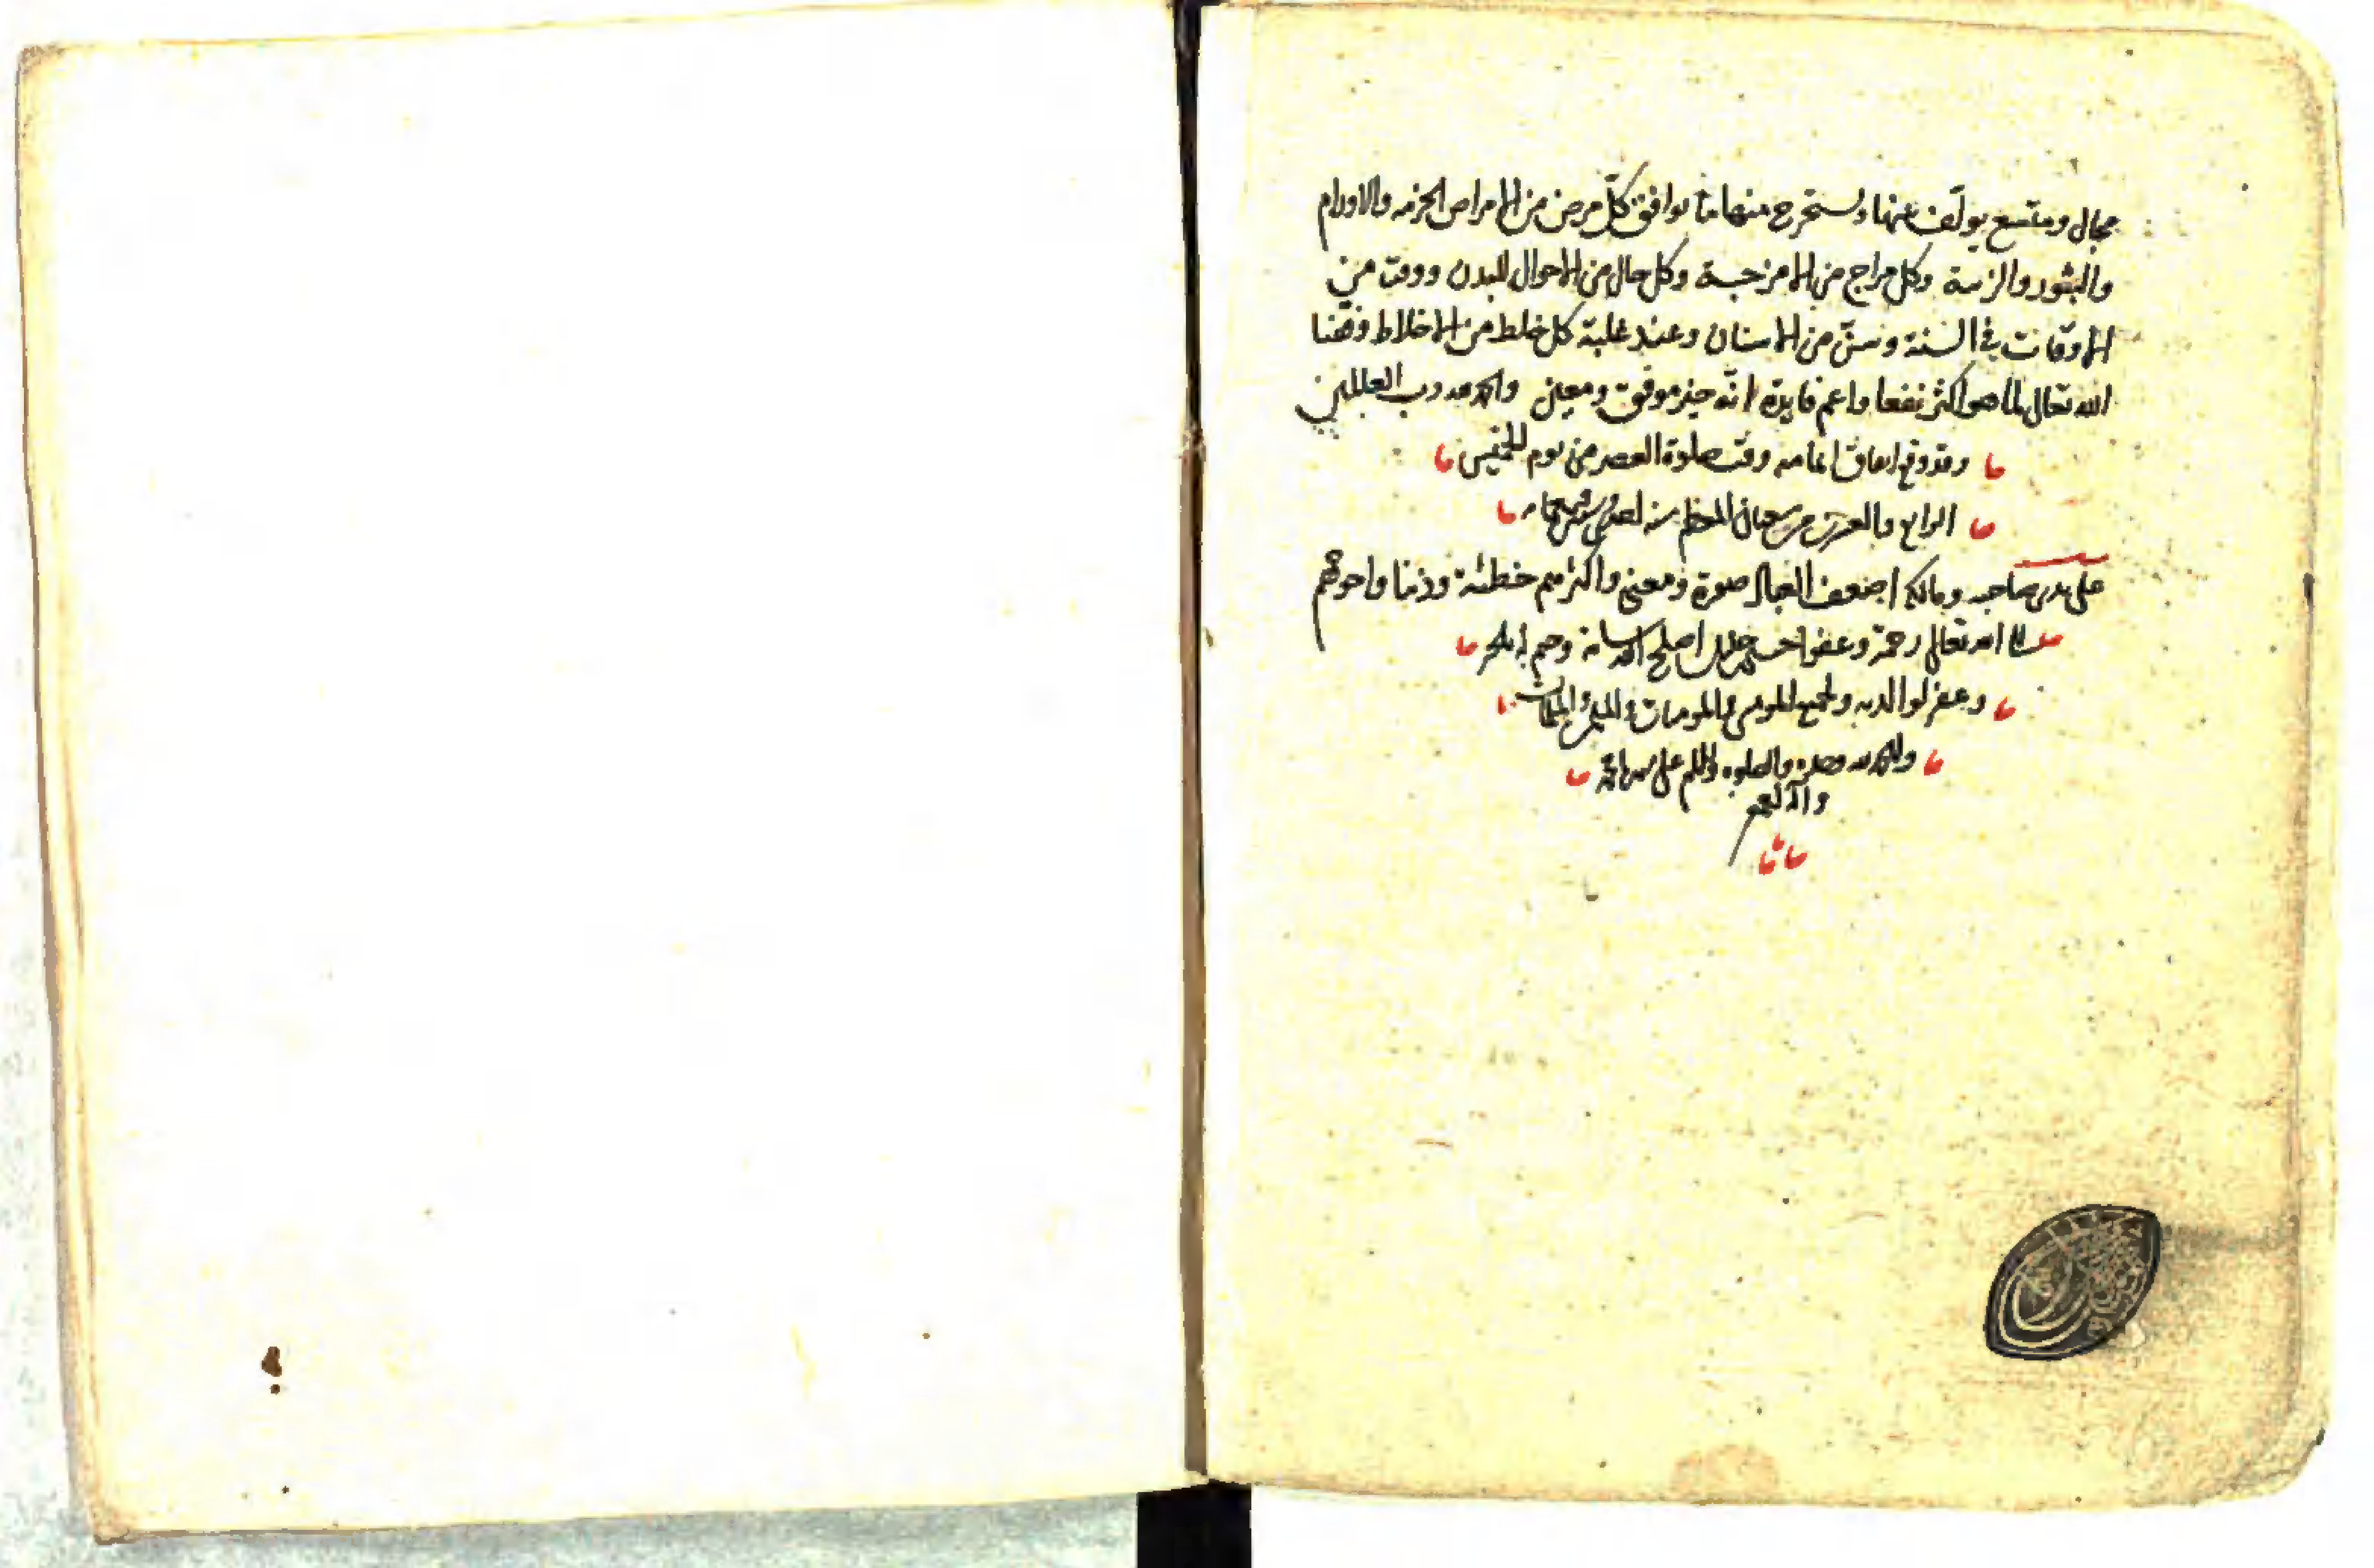 مجال ومتسع يولف عنها ويستخرج منها ما يوافق كلّ مرض من الامراض الجزئيه والاورام
والبثور والزينة وكل مزاج من الامزجة وكل حال من الاحوال للبدن ووقت من
الاوقات في السنة وسنّ من الاسنان وعند غلبة كل خلط من الاخلاط وفقنا
الله تعالى لما هو اكثر نفعا واعم فايدة انّه خير موفق ومعين والحمد لله رب العالمين
وقد وقع اتفاق اتمامه وقت صلوة العصر من يوم الخميس
الرابع والعشرين من شعبان المعظم سنة
على يدى صاحبه ومالكه اضعف العباد صورة ومعنى واكثرهم خطيئة وذنبا واحوجهم
الى الله تعالى رحمة وعفوا اصلح الله شانه
وغفر لوالديه ولجميع المومنين والمومنات والمسلمين والمسلمات
والحمد لله وحده والصلوة والسلم على
وآله